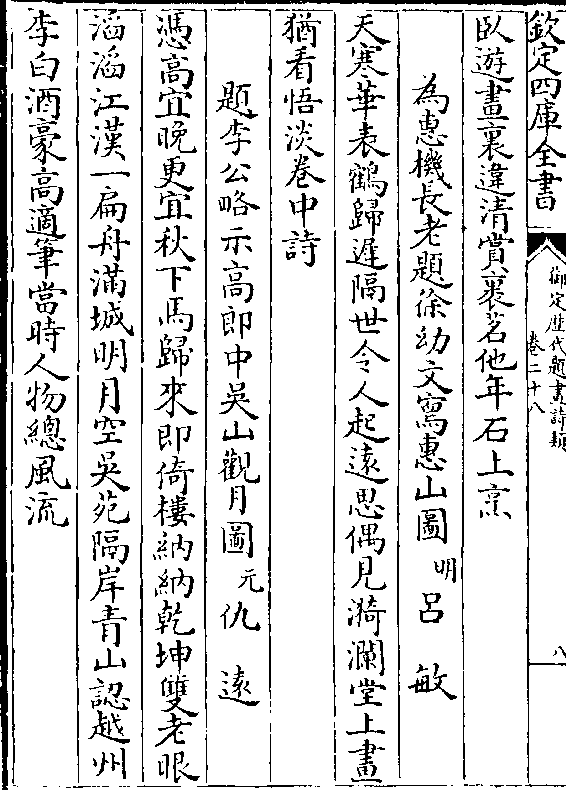 欽定四庫全書
御定歴代題畫詩類
卷二十八
八
臥遊畫裏違清賞裹茗他年石上烹
為惠機長老題徐幼文寫惠山圖 明 呂敏
天寒華表鶴歸遲隔世令人起遠思偶見漪瀾堂上畫
猶看悟淡卷中詩
題李公略示高郎中吳山觀月圖 元 仇遠
憑高宜晚更宜秋下馬歸來即倚樓納納乾坤雙老眼
滔滔江漢一扁舟滿城明月空吳苑隔岸青山認越州
李白酒豪高適筆當時人物總風流